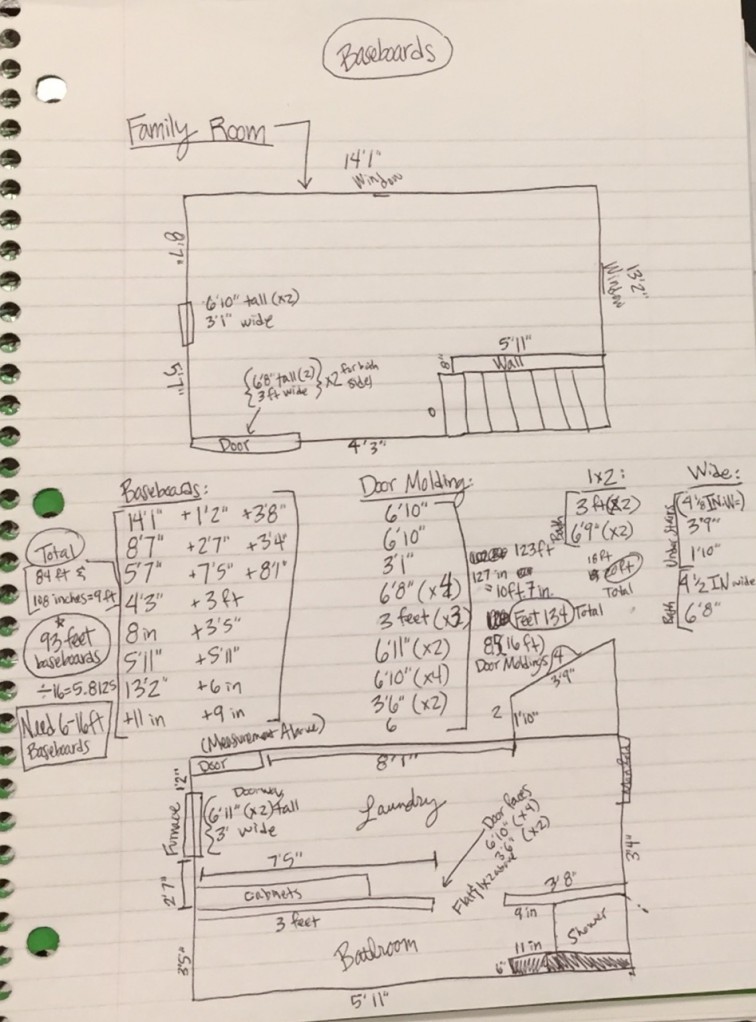 Baseboards
Family Room
14'1"
Window
8'7"
6'10" tall (x2)
3'1" wide
Window
13'2"
5'7"
{6'8" tall (2)} x2 for both
{3 ft wide} sides
5'11"
8"
Wall
Door
4'3"
Baseboards:
14'1" +1'2" +3'8"
8'7" +2'7" +3'4"
5'7" +7'5" +8'1"
4'3" +3 ft
8 in +3'5"
5'11" +5'11"
13'2" +6 in
+11 in +9 in
(Measurement Above)
Total
84 ft &
108 inches=9 ft
*
93 feet
baseboards
÷16=5.8125
Need 6-16ft
Baseboards
Door Molding:
6'10"
6'10"
3'1"
6'8" (x4)
3 feet (x3)
6'11" (x2)
6'10" (x4)
3'6" (x2)
6
123ft
127 in
= 10ft 7 in
Feet 134 Total
(16 ft)
Door Moldings
1x2:
Bath
3 ft (x2)
6'9" (x2)
18 ft
20ft
Total
Wide:
Under Stairs
(4 1/8 IN W)
3'9"
1'10"
Bath
4 1/2 IN wide
6'8"
4
3'9"
2
1'10"
Door
8'1"
1'2"
Furnace
Doorway
6'11" (x2) tall
3' wide
Laundry
Door faces
6'10" (x4)
3'6" (x2)
Flat 1x2 above
3'4"
7'5"
2'7"
Cabinets
3 feet
3'8"
9 in
Shower
Bathroom
11 in
6"
3'5"
5'11"